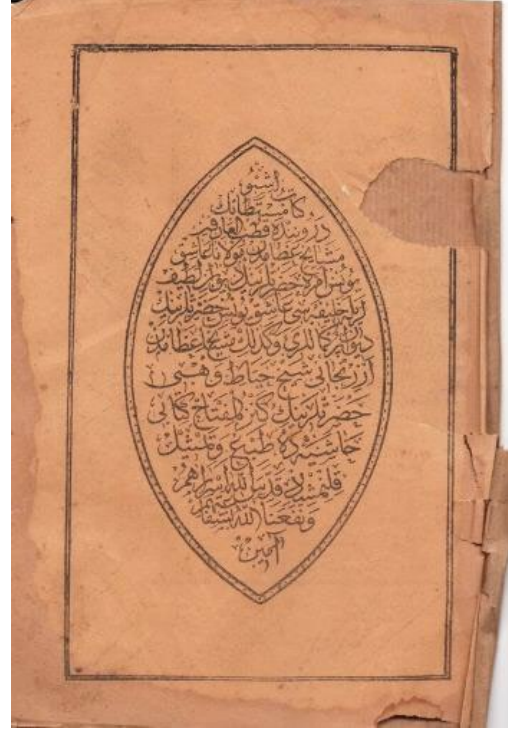 اشبو
كتاب مستطابك
درونده قطب العارفين
مشايخ عظامدن مولانا عاشق
يونس امره حضرتلرينك ديوان لطيف
ايله خليفه سى عاشق يونس حضرتلرينك
ديوانلرى كذلك مشايخ عظامدن
ارزنجانى شيخ خياط وهبى
حضرتلرينك كنز المفتاح كتابى
حاشيه ده طبع وتمثيل
قلنمشدر قدس الله اسرارهم
ونفعنا الله
آمين